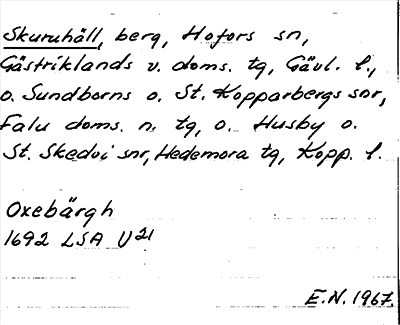 Skuruhäll, berg, Hofors sn,
Gästriklands v. doms. tg, Gävl. l.,
o. Sundborns o. St. Kopparbergs snr,
Falu doms. n. tg, o. Husby o.
St. Skedvi snr, Hedemora tg, Kopp. l.
Oxebärgh
1692 LSA U21
E.N. 1967.